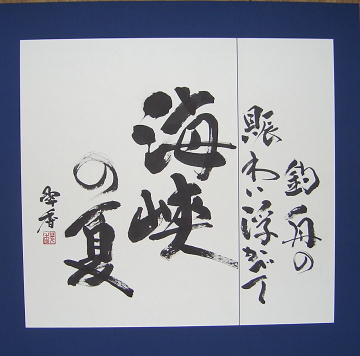 釣舟の
賑わい浮がべて
海峡
の夏
翠香